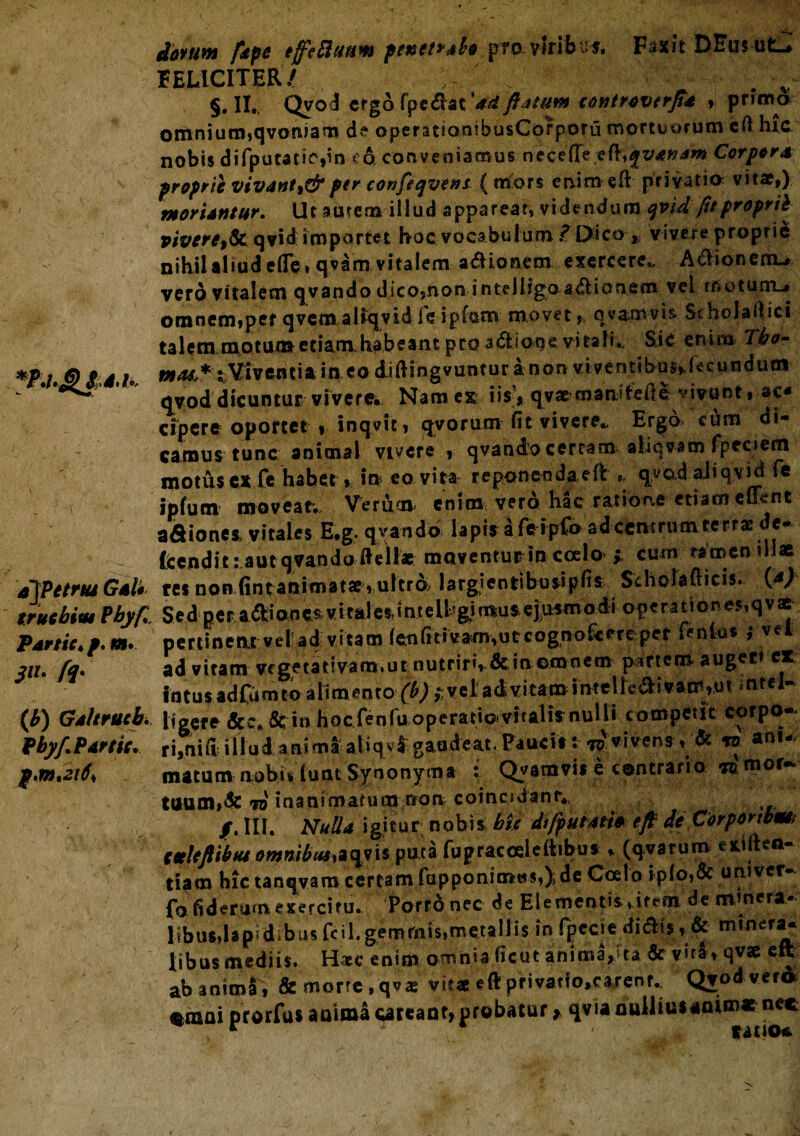 dorum sæpe effectuum penetrale pro viribus. Faxit DEus ut
FELICITER!
§. II. Qvod ergò spectat ad statum controversiæ, primò
omnium, qvoniam de operationibus Corporū mortuorum est hic
nobis disputatio, in eò conveniamus necesse est, qvænam Corpora
propriè vivant, & per conseqvens (mors enim est privatio vitæ,)
moriantur. Ut autem illud appareat, videndum qvid sit propriè
vivere, & qvid importet hoc vocabulum? Dico, vivere propriè
nihil aliud esse, qvàm vitalem actionem exercere. Actionem
verò vitalem qvando dico, non intelligo actionem vel motum
omnem, per qvem aliqvid se ipsum movet, qvamvis Scholastici
talem motum etiam habeant pro actione vitali. Sic enim Tho-
*P.1.Q 1.4.1. mas.*: Viventia in eo distingvuntur à non viventibus, secundum
qvod dicuntur vivere. Nam ex iis, qvæ manifestè vivunt, ac-
cipere oportet, inqvit, qvorum sit vivere. Ergò cùm di-
camus tunc animal vivere, qvando certam aliqvam speciem
motûs ex se habet, in eo vita reponenda est, qvod aliqvid se
ipsum moveat. Verùm enim verò hâc ratione etiam essent
actiones vitales E.g. qvando lapis à se ipso ad centrum terræ de-
scendit: aut qvando stellæ moventur in cœlo; cum tamen illæ
a] Petrus Gal- res non sint animatæ, ultrò largientibus ipsis Scholasticis. (a)
truchius Phys. Sed per actiones vitales, intelligimus ejusmodi operationes, qvæ
Partic. p. m. pertinent vel ad vitam sensitivam, ut cognoscere per sensus; vel
311. sq. ad vitam vegetativam, ut nutriri, & in omnem partem augeri ex
intus adsumto alimento (b); vel ad vitam intellectivam, ut intel-
(b) Galtruch. ligere &c. & in hoc sensu operatio vitalis nulli competit corpo-
Phys. Partic. ri, nisi illud animâ aliqvâ gaudeat. Paucis: τὸ vivens, & τὸ ani-
p.m.216. matum nobis sunt Synonyma: Qvamvis è contrario τὸ mor-
tuum, & τὸ inanimatum non coincidant.
§. III. Nulla igitur nobis hîc disputatio est de Corporibus
cœlestibus omnibus, aqvis putà supracœlestibus, (qvarum existen-
tiam hîc tanqvam certam supponimus,) de Cœlo ipso, & univer-
so siderum exercitu. Porrò nec de Elementis, item de minera-
libus, lapidibus scil. gemmis, metallis in specie dictis, & minera-
libus mediis. Hæc enim omnia sicut animâ, ita & vitâ, qvæ est
ab animâ, & morte, qvæ vitæ est privatio, carent. Qvod verò
omni prorsus animâ careant, probatur, qvia nullius animæ nec
ratio-